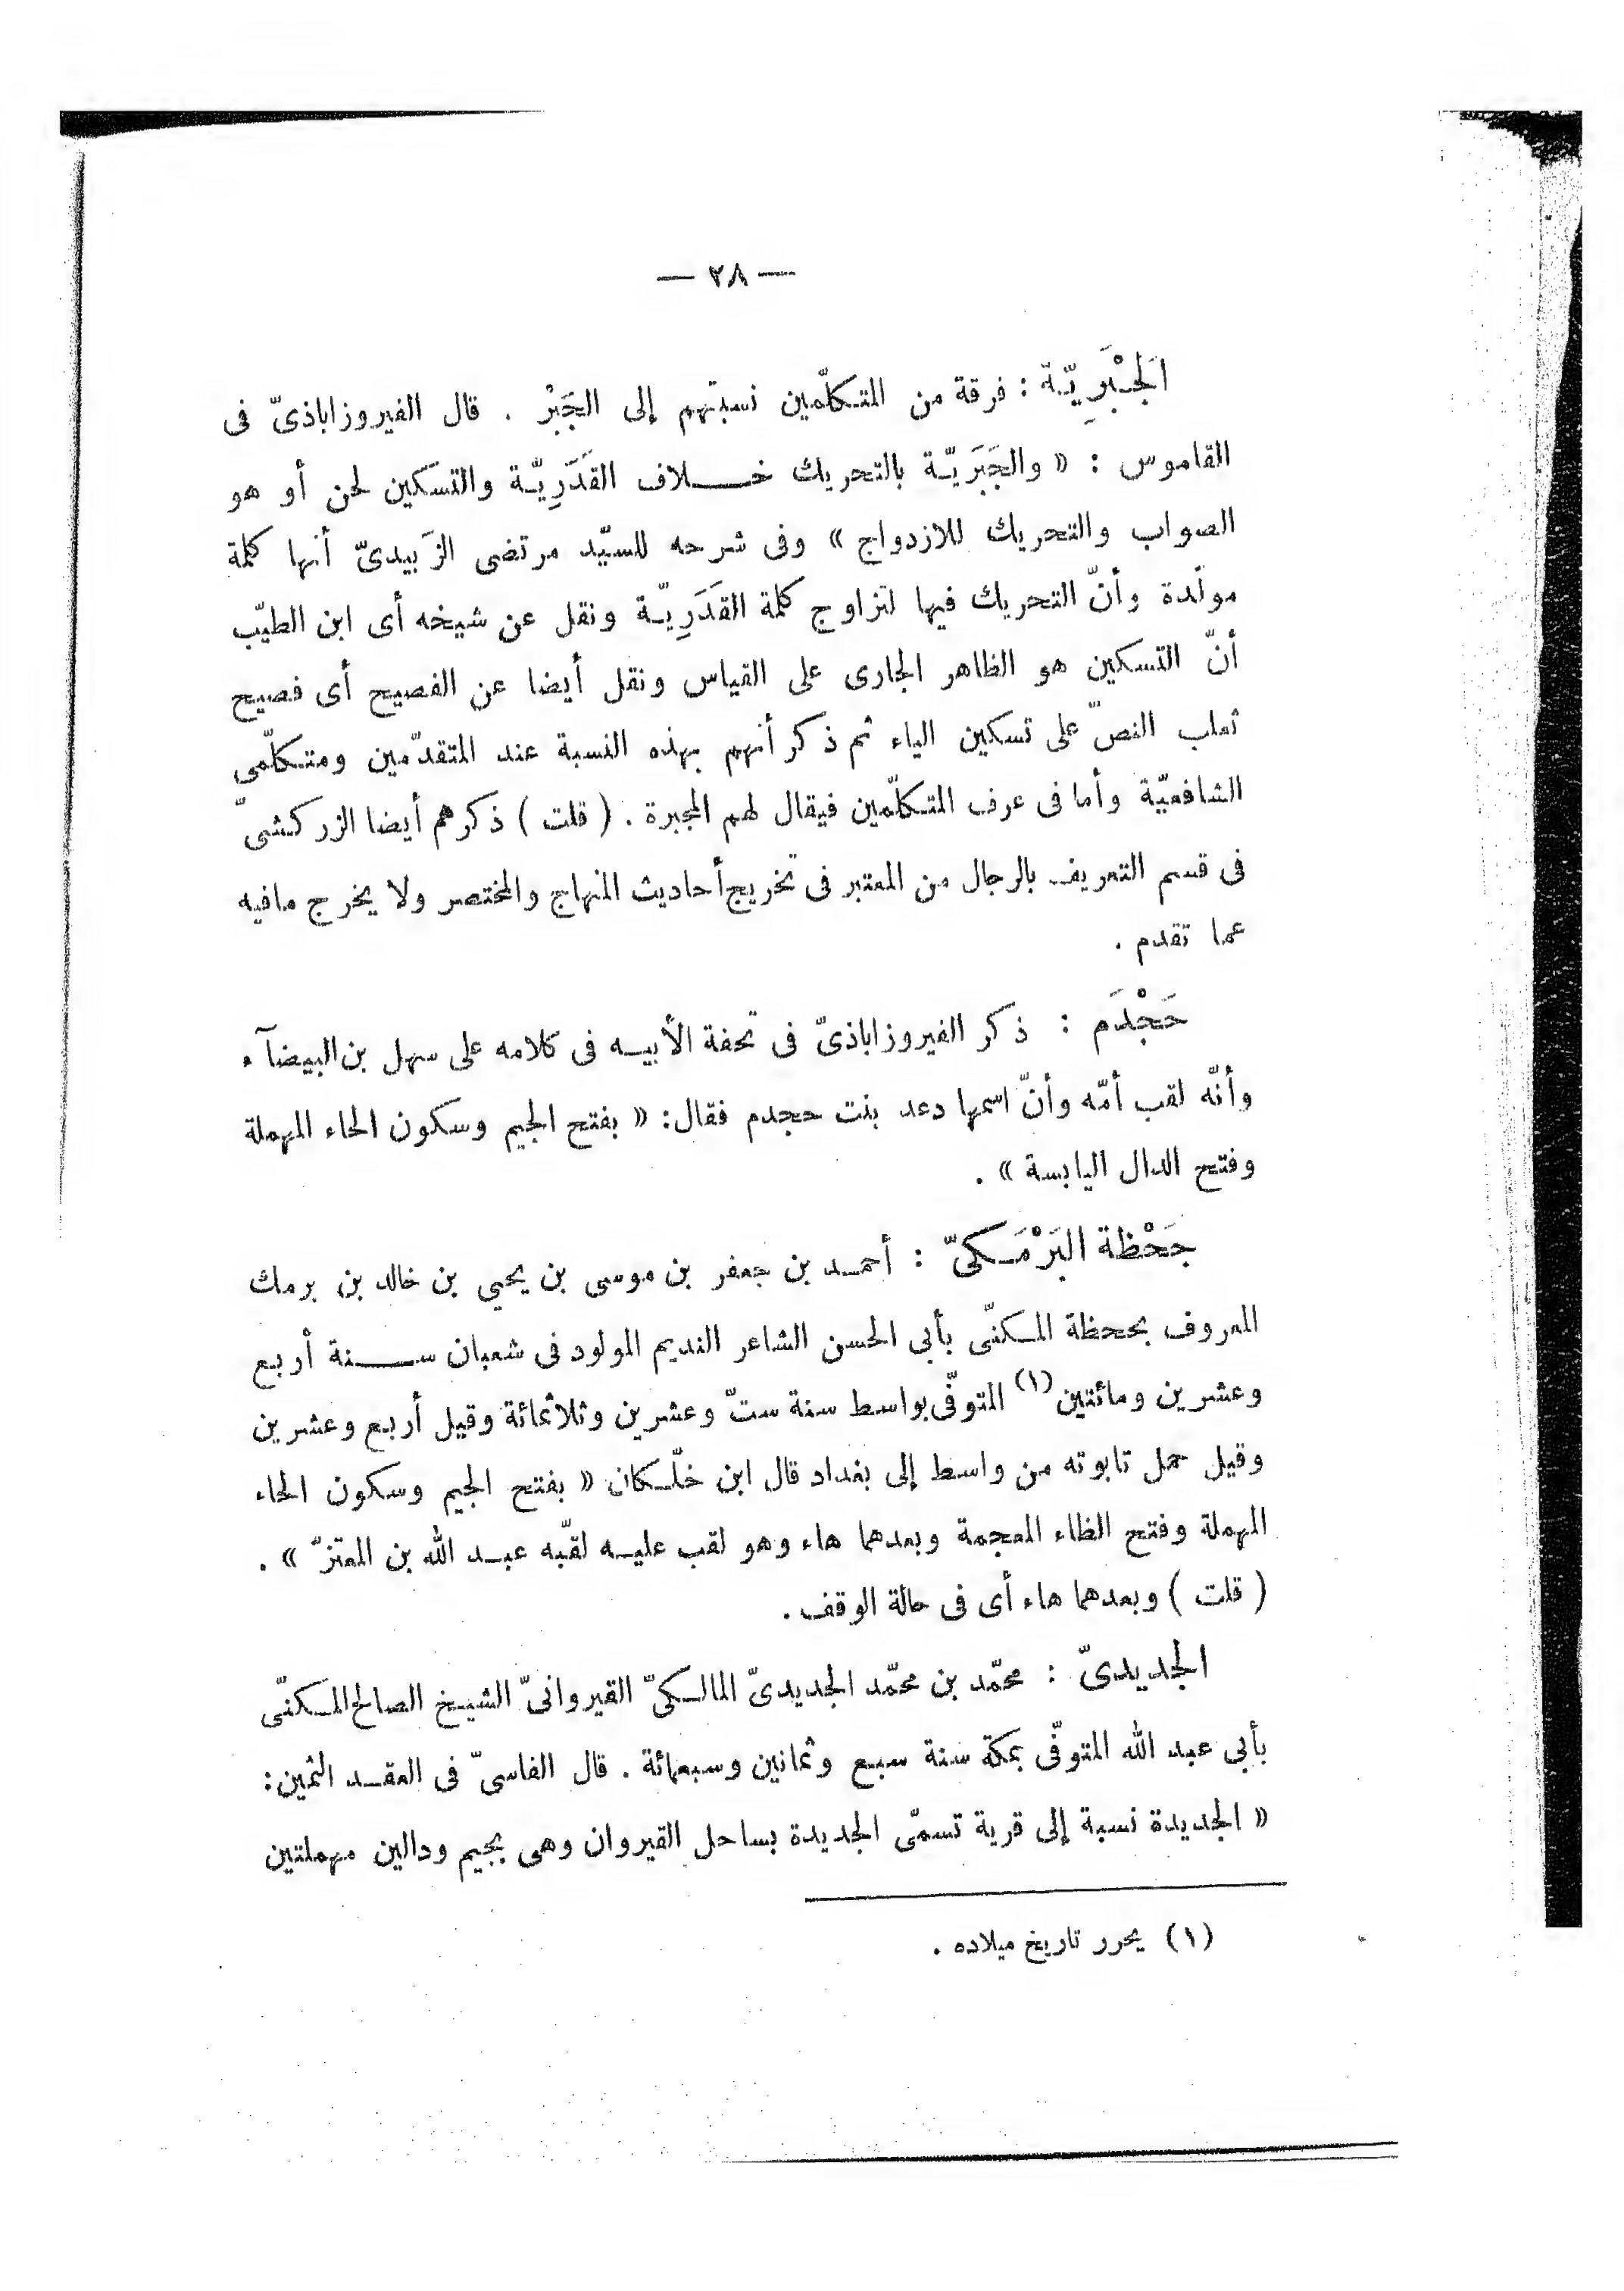 — ٢٨ —
الجَبْرِيّة : فرقة من المتكلّمين نسبتهم إلى الجَبْر . قال الفيروزاباذىّ فى
القاموس : « والجَبَرَيّة بالتحريك خلاف القَدَرِيّة والتسكين لحن أو هو
الصواب والتحريك للازدواج » وفى شرحه للسيّد مرتضى الزَبيدىّ أنها كلمة
مولّدة وأنّ التحريك فيها لتزاوج كلمة القَدَرِيّة ونقل عن شيخه أى ابن الطيّب
أنّ التسكين هو الظاهر الجارى على القياس ونقل أيضا عن الفصيح أى فصيح
ثعلب النصّ على تسكين الياء ثم ذكر أنهم بهذه النسبة عند المتقدّمين ومتكلّمى
الشافعيّة وأما فى عرف المتكلّمين فيقال لهم المجبرة . ( قلت ) ذكرهم أيضا الزركشىّ
فى قسم التعريف بالرجال من المعتبر فى تخريج أحاديث المنهاج والمختصر ولا يخرج مافيه
عما تقدم .
حَجْدَم : ذكر الفيروزاباذىّ فى تحفة الأبيه فى كلامه على سهل بن البيضآء
وأنّه لقب أمّه وأنّ اسمها دعد بنت حجدم فقال : « بفتح الجيم وسكون الحاء المهملة
وفتح الدال اليابسة » .
جَحْظة البَرْمَكىّ : أحمد بن جعفر بن موسى بن يحيى بن خالد بن برمك
المعروف بجحظة المكنّى بأبى الحسن الشاعر النديم المولود فى شعبان سنة أربع
وعشرين ومائتين (١) المتوفّى بواسط سنة ستّ وعشرين وثلاثمائة وقيل أربع وعشرين
وقيل حمل تابوته من واسط إلى بغداد قال ابن خلّكان « بفتح الجيم وسكون الحاء
المهملة وفتح الظاء المعجمة وبعدهما هاء وهو لقب عليه لقّبه عبد الله بن المعتزّ » .
( قلت ) وبعدهما هاء أى فى حالة الوقف .
الجديدىّ : محمّد بن محمّد الجديدىّ المالكىّ القيروانىّ الشيخ الصالح المكنّى
بأبى عبد الله المتوفّى بمكة سنة سبع وثمانين وسبعمائة . قال الفاسىّ فى العقد الثمين :
« الجديدة نسبة إلى قرية تسمّى الجديدة بساحل القيروان وهى بجيم ودالين مهملتين
(١) يحرر تاريخ ميلاده .